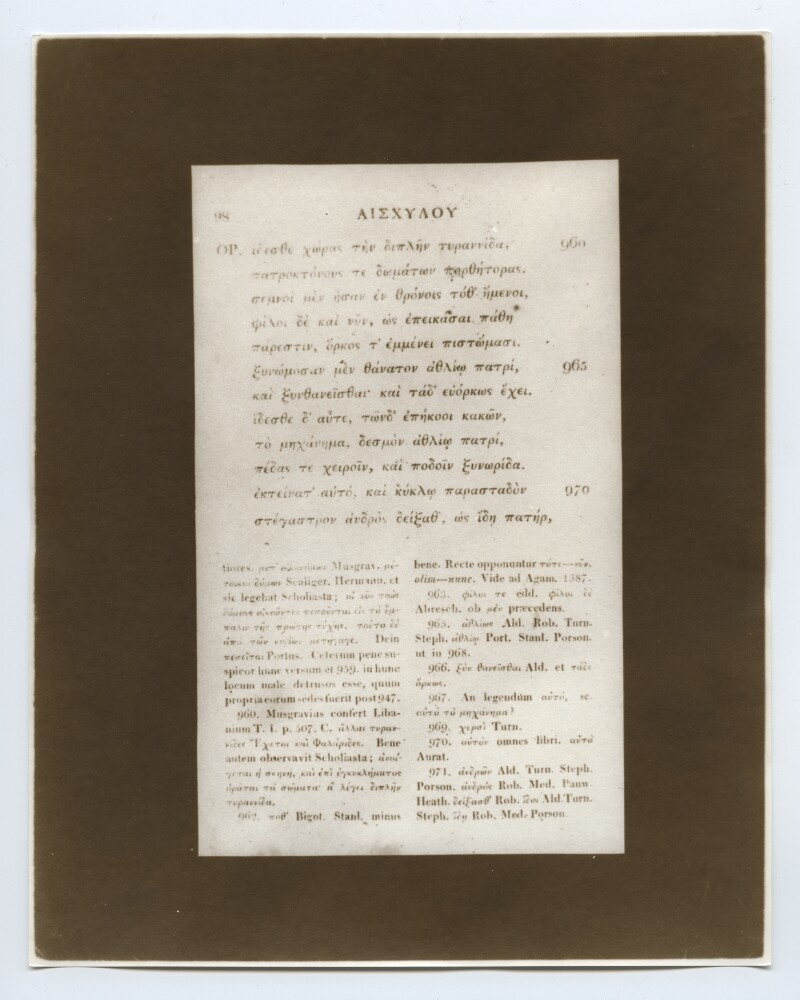 98
ΑΙΣΧΥΛΟΥ
ΟΡ. ἴδεσθε χώρας τὴν διπλῆν τυραννίδα, 960
πατροκτόνους τε δωμάτων πορθήτορας.
σεμνοὶ μὲν ἦσαν ἐν θρόνοις τόθ' ἥμενοι,
φίλοι δὲ καὶ νῦν, ὡς ἐπεικάσαι πάθη
πάρεστιν, ὅρκος τ' ἐμμένει πιστώμασι.
ξυνώμοσαν μὲν θάνατον ἀθλίῳ πατρί, 965
καὶ ξυνθανεῖσθαι· καὶ τάδ' εὐόρκως ἔχει.
ἴδεσθε δ' αὖτε, τῶνδ' ἐπήκοοι κακῶν,
τὸ μηχάνημα, δεσμὸν ἀθλίῳ πατρί,
πέδας τε χειροῖν, καὶ ποδοῖν ξυνωρίδα.
ἐκτείνατ' αὐτό, καὶ κύκλῳ παρασταδὸν 970
στέγαστρον ἀνδρὸς δείξαθ', ὡς ἴδῃ πατήρ,
Musgrav.
Scaliger. Hermann. et
sic legebat Scholiasta; οἱ νῦν τοὺς
δόμους οἰκοῦντες πεσοῦνται εἰς τὸ ἔμ-
παλιν τῆς πρώτης τύχης. τοῦτο δὲ
ἀπὸ τῶν κύβων μετήγαγε. Dein
πεσεῖται Portus. Ceterum pene su-
spicor hunc versum et 959. in hunc
locum male detrusos esse, quum
propria eorum sedes fuerit post 947.
960. Musgravius confert Liba-
nium T. I. p. 507. C. ἄλλας τυραν-
νίδες Ἔχετοι καὶ Φαλάριδες. Bene
autem observavit Scholiasta; ἀνοί-
γεται ἡ σκηνή, καὶ ἐπὶ ἐγκυκλήματος
ὁρᾶται τὰ σώματα· ἃ λέγει διπλῆν
τυραννίδα.
962. ποθ' Bigot. Stanl. minus
bene. Recte opponuntur τότε—νῦν.
olim—nunc. Vide ad Agam. 1587.
963. φίλοι τε edd. φίλοι δὲ
Abresch. ob μὲν præcedens.
965. ἀθλίως Ald. Rob. Turn.
Steph. ἀθλίῳ Port. Stanl. Porson.
ut in 968.
966. ξὺν θανεῖσθαι Ald. et τάδε
ὅρκως.
967. An legendum αὐτό, sc.
αὐτὸ τὸ μηχάνημα?
969. χερσὶ Turn.
970. αὐτὸν omnes libri. αὐτὸ
Aurat.
971. ἀνδρῶν Ald. Turn. Steph.
Porson. ἀνδρὸς Rob. Med. Pauw.
Heath. δείξασθ' Rob. ἴδοι Ald. Turn.
Steph. ἴδῃ Rob. Med. Porson